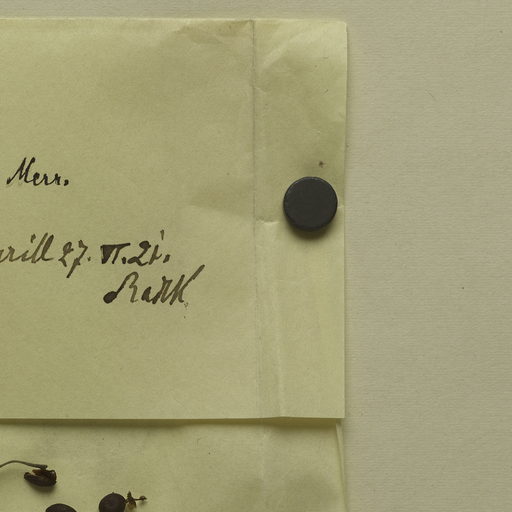 Merr.
rill 27. VI. 21.